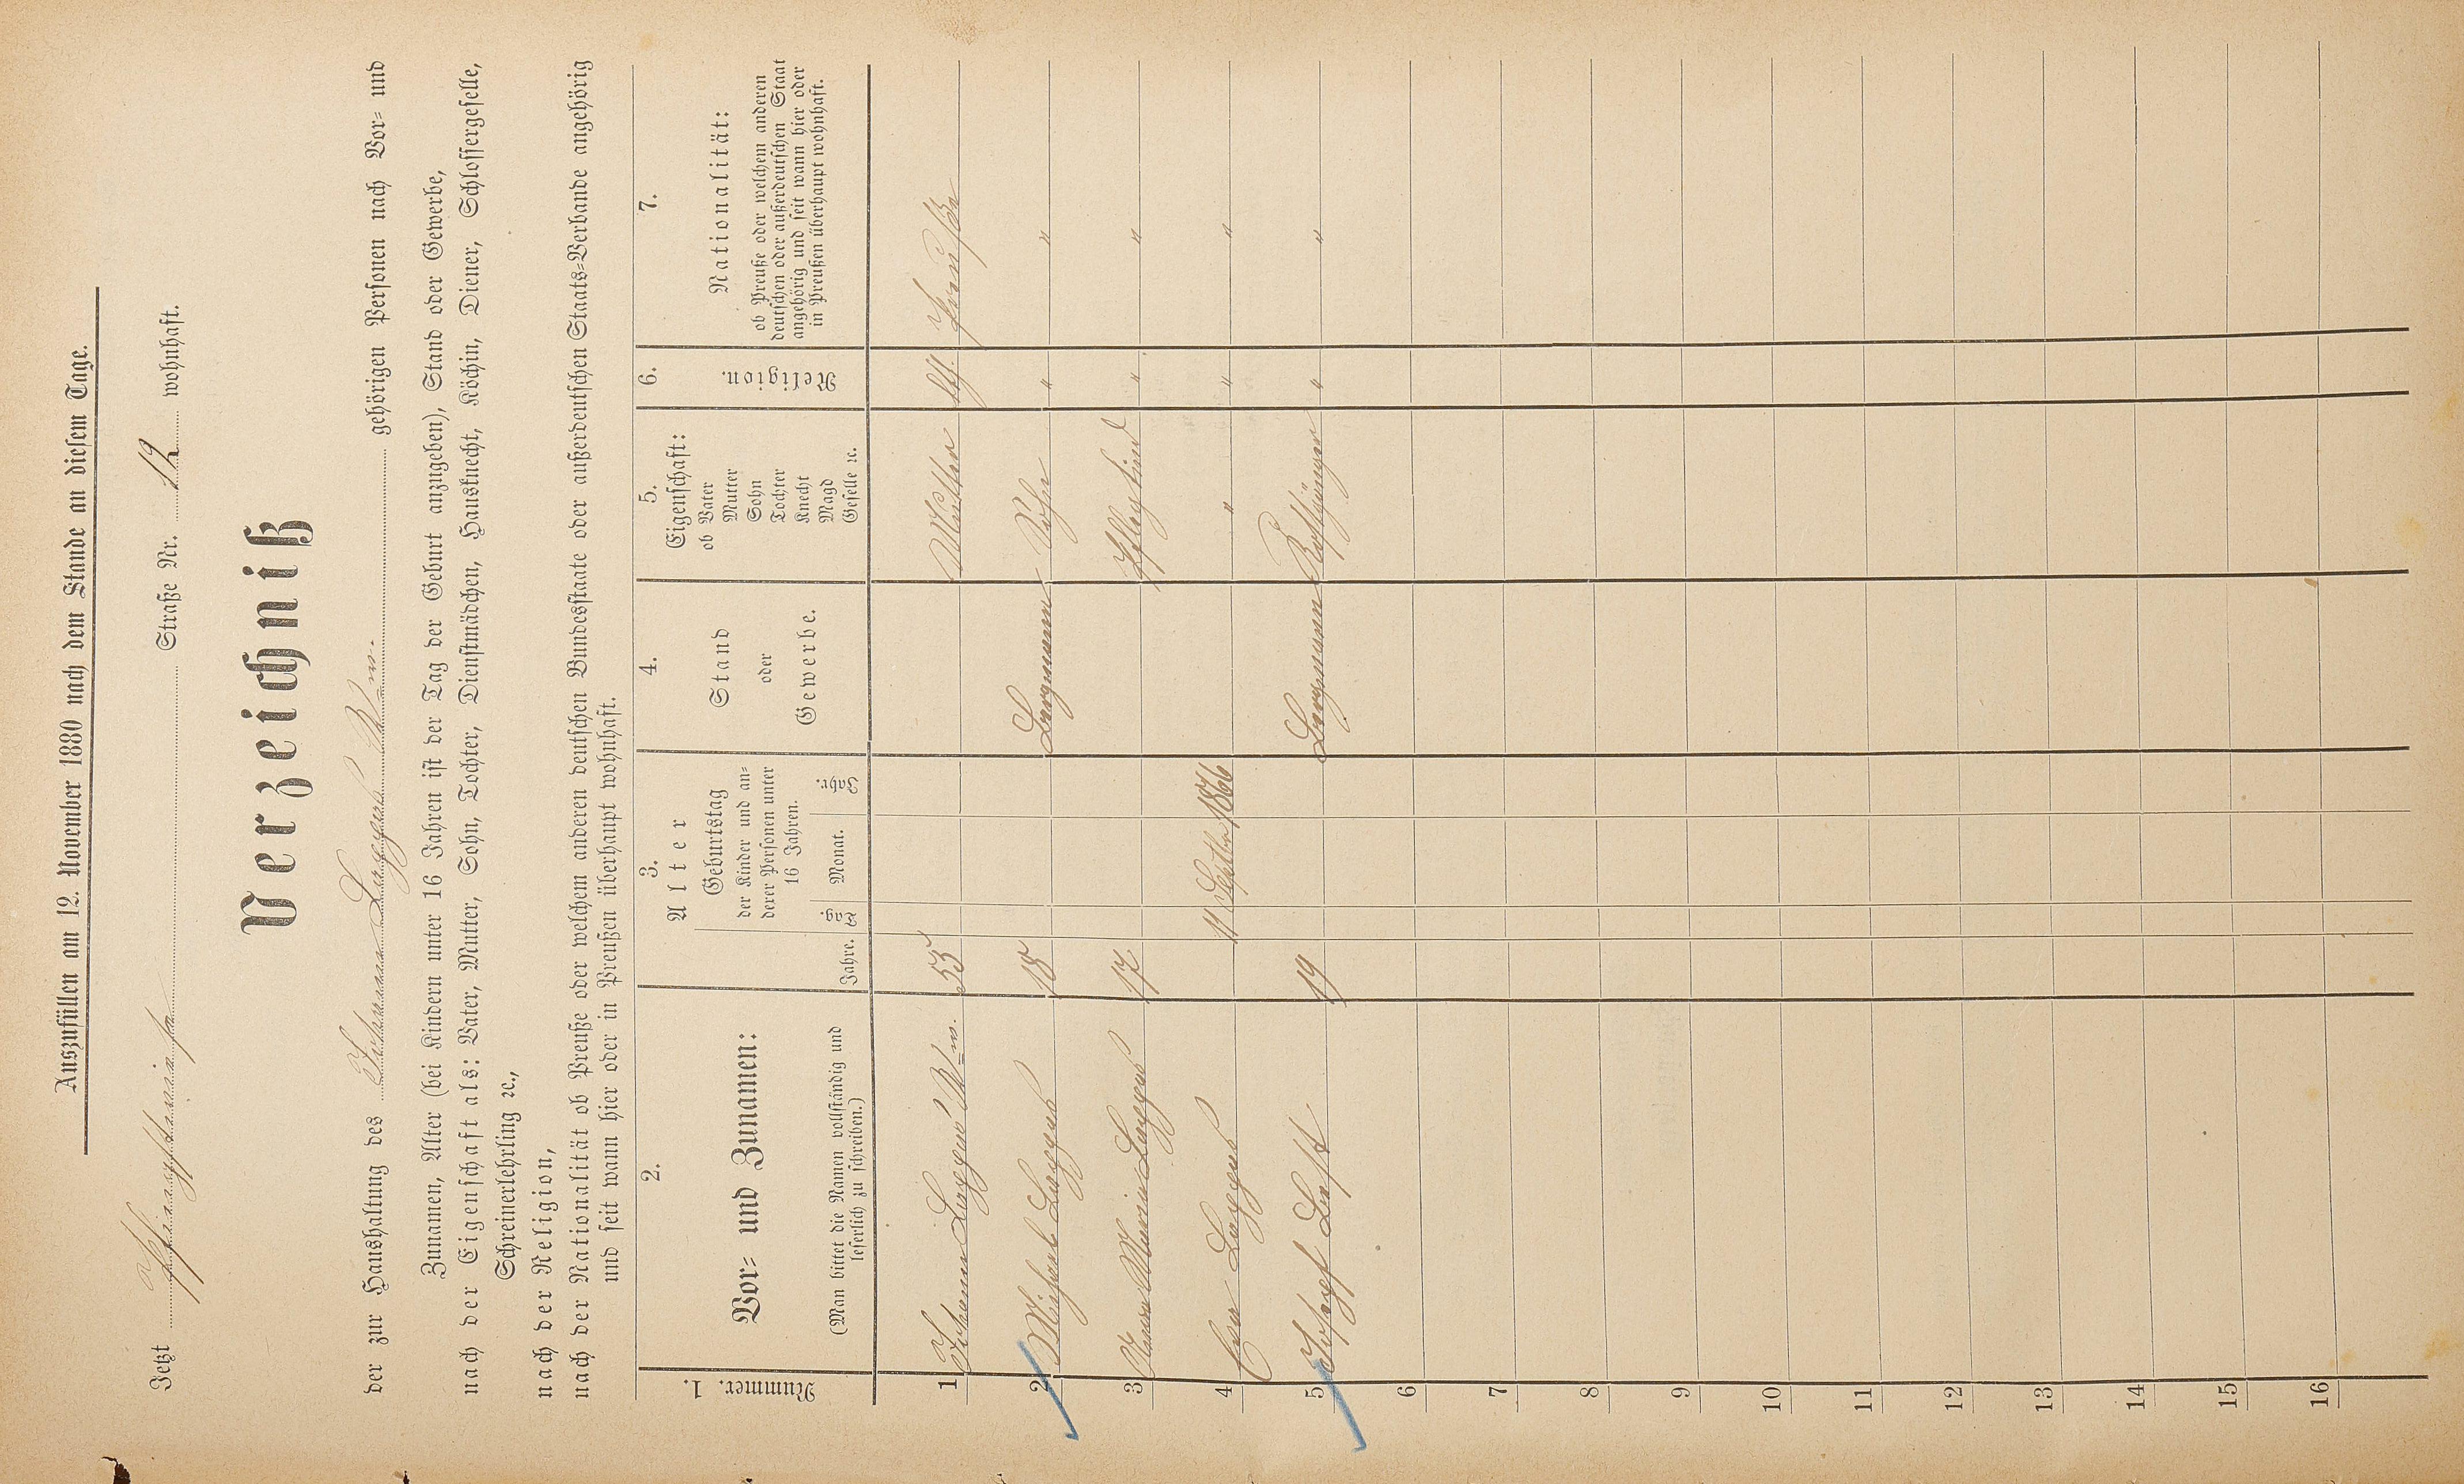 Auszufüllen am 12. November 1880 nach dem Stande an diesem Tage.
Jetzt Straße Nr. 12 wohnhaft.
Verzeichniß
der zur Haushaltung des Johann W=we. gehörigen Personen nach Vor= und
Zunamen, Alter (bei Kindern unter 16 Jahren ist der Tag der Geburt anzugeben), Stand oder Gewerbe,
nach der Eigenschaft als: Vater, Mutter, Sohn, Tochter, Dienstmädchen, Hausknecht, Köchin, Diener, Schlossergeselle,
Schreinerlehrling ꝛc.,
nach der Religion,
nach der Nationalität ob Preuße oder welchem anderen deutschen Bundesstaate oder außerdeutschen Staats=Verbande angehörig
und seit wann hier oder in Preußen überhaupt wohnhaft.
1. Nummer.
2.
Vor= und Zunamen:
(Man bittet die Namen vollständig und
leserlich zu schreiben.)
3.
Alter
Jahre.
Geburtstag
der Kinder und an=
derer Personen unter
16 Jahren.
Tag. Monat. Jahr.
4.
Stand
oder
Gewerbe.
5.
Eigenschaft:
ob Vater
Mutter
Sohn
Tochter
Knecht
Magd
Geselle ꝛc.
6.
Religion.
7.
Nationalität:
ob Preuße oder welchem anderen
deutschen oder außerdeutschen Staat
angehörig und seit wann hier oder
in Preußen überhaupt wohnhaft.
1 Johann W=we. 53 Mutter kth. Preuße
2 Michael 18 Bergmann Sohn " "
3 Anna Maria 17 Pflegkind " "
4 Eva 11 Septbr 1866 " " "
5 Josef 19 Bergmann Kostgänger " "
6
7
8
9
10
11
12
13
14
15
16